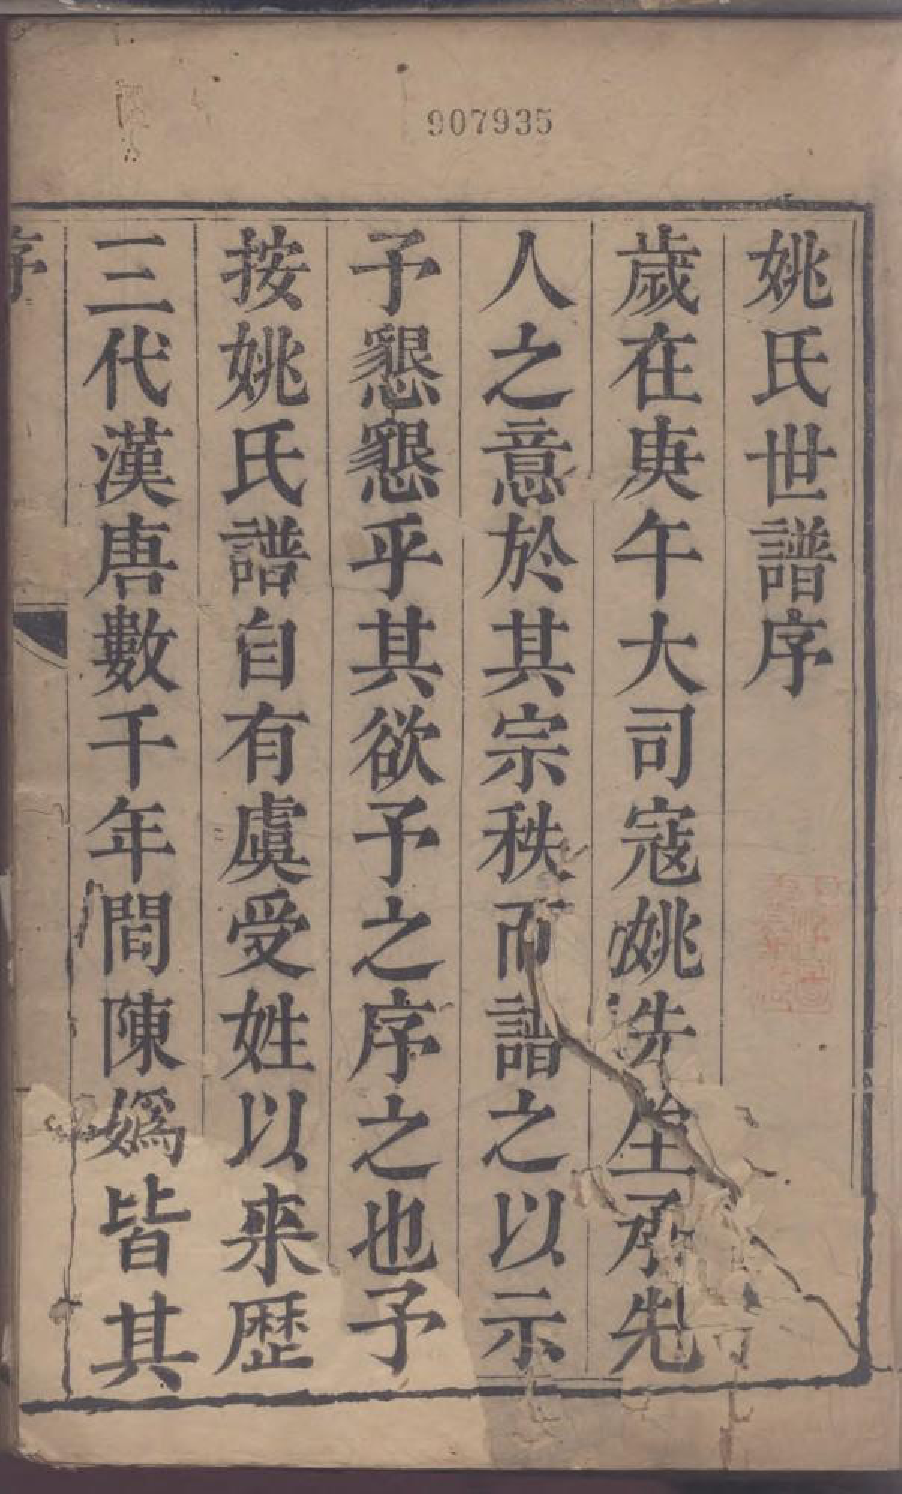 907935
姚氏世譜序
歲在庚午大司寇姚先生承先
人之意於其宗秩而譜之以示
予懇懇乎其欲予之序之也予
按姚氏譜自有虞受姓以来歷
三代漢唐數千年間陳嬀皆其
序